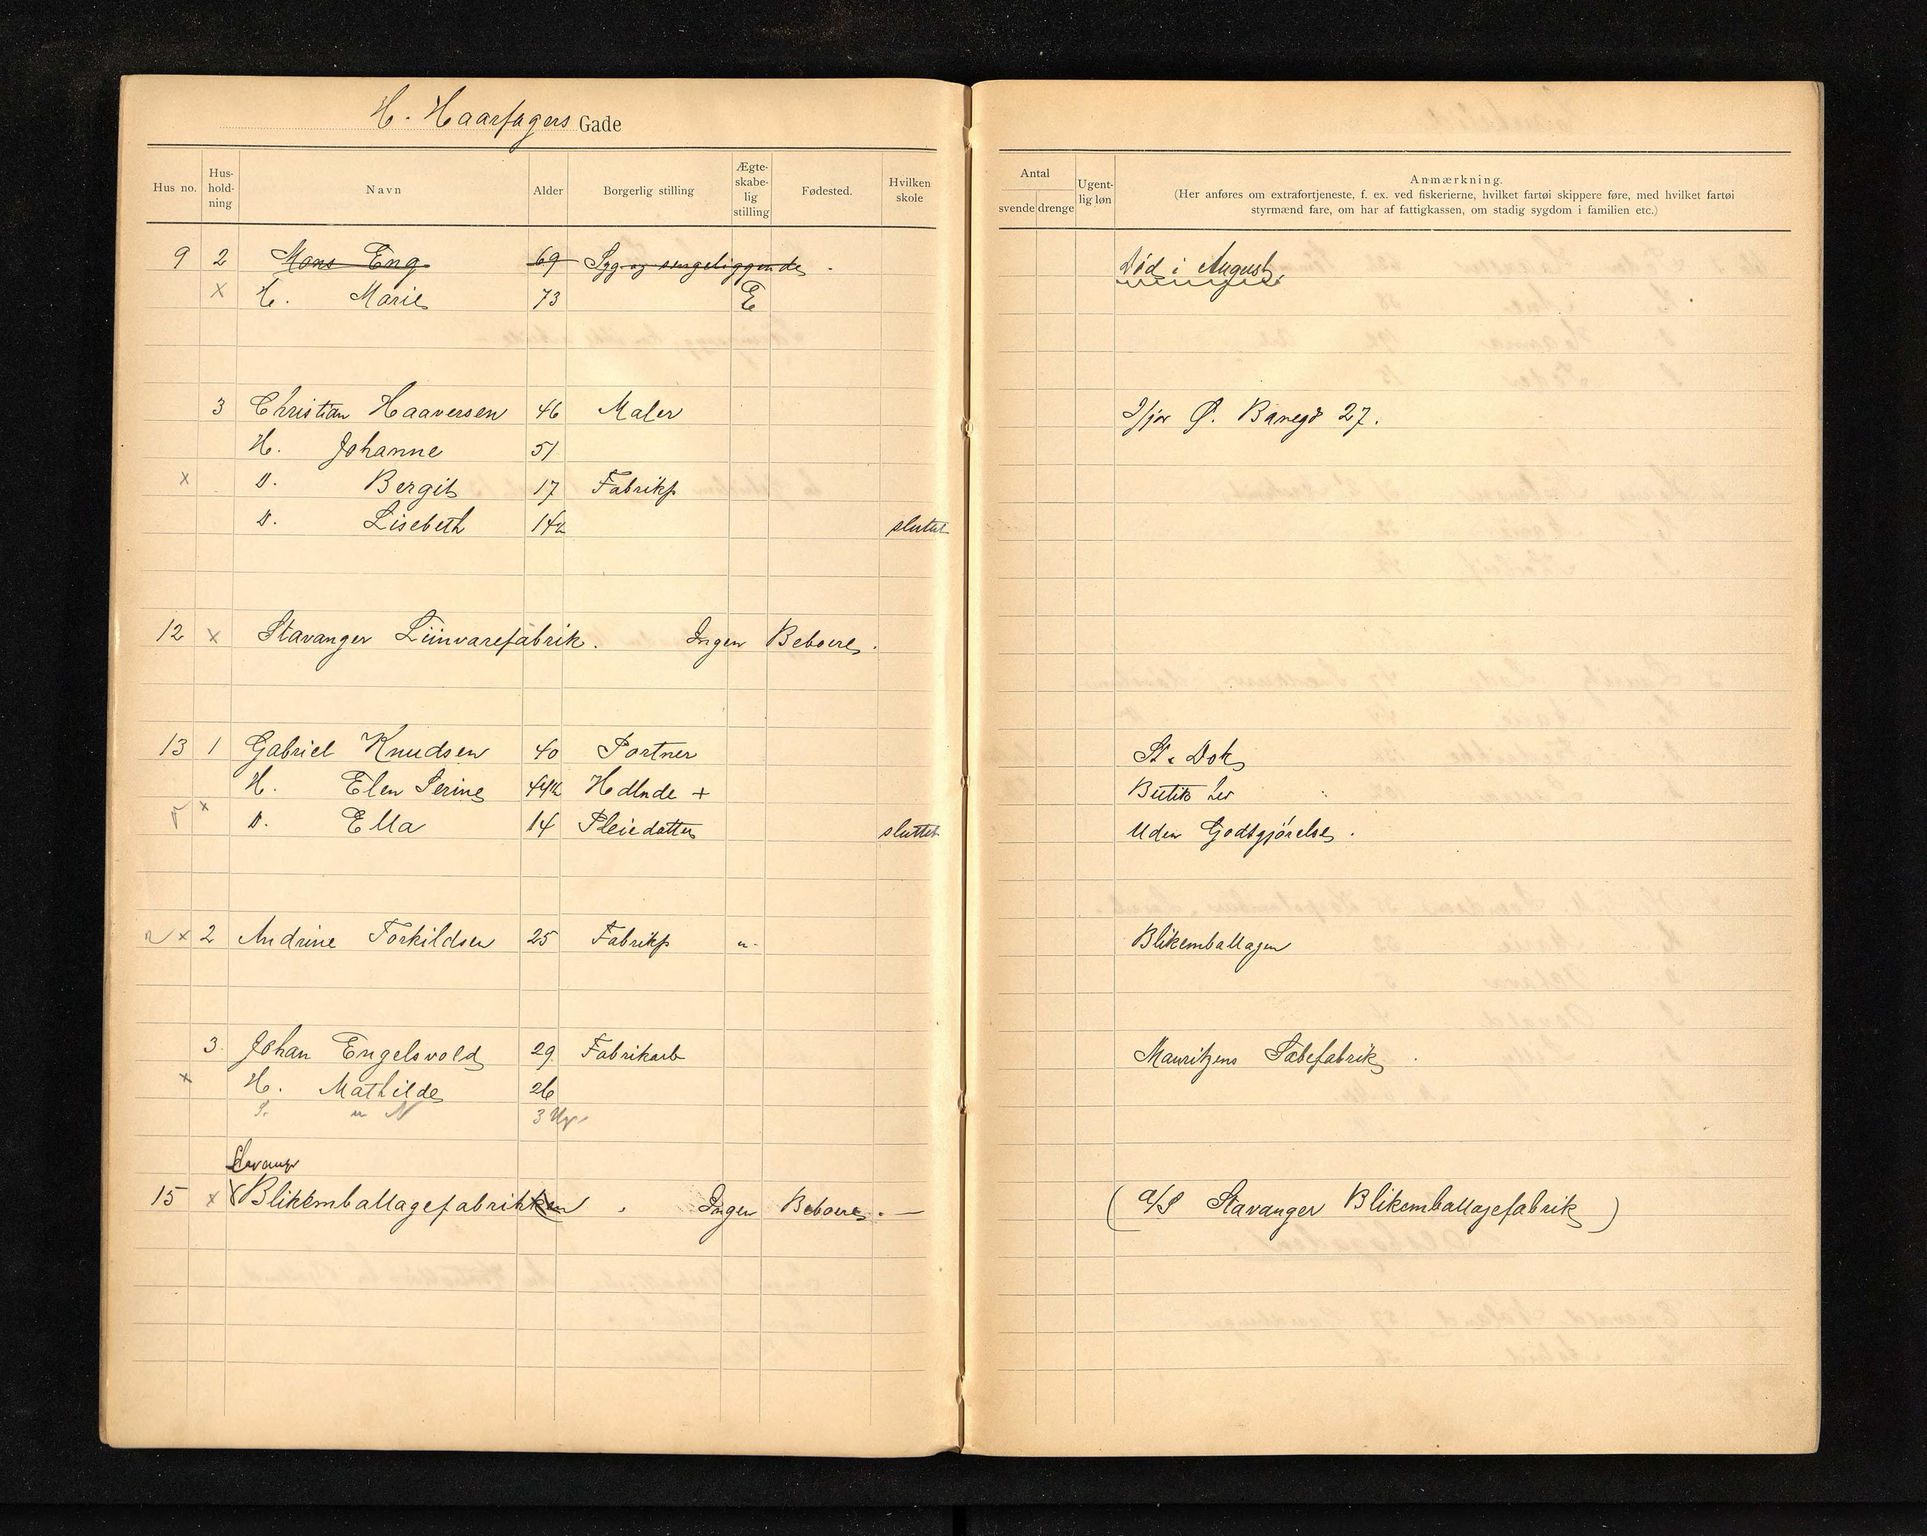 H. Haarfagers Gade
Hus no. Hus-hold-ning Navn Alder Borgerlig stilling Ægte-skabe-lig stilling Fødested. Hvilken skole Antal svende drenge Ugent-lig løn Anmærkning.
(Her anføres om extrafortjeneste, f. ex. ved fiskerierne, hvilket fartøi skippere føre, med hvilket fartøi
styrmænd fare, om har af fattigkassen, om stadig sygdom i familien etc.)
9 2 Mons Eng 69 Syg og sengeliggende. Død i August.
x H. Marie 73 E
3 Christian Haaversen 46 Maler Ifjor Ø. Banegd 27.
H. Johanne 51
x D. Bergit 17 Fabrikp
D. Lisebeth 14½ sluttet
12 x Stavanger Liinvarefabrik. Ingen Beboere.
13 1 Gabriel Knudsen 40 Portner St. Dok
H. Elen Serine 44½ Hdlnde + Butik her
x D. Ella 14 Pleiedatter sluttet Uden Godtgjørelse.
x 2 Andrine Torkildsen 25 Fabrikp u. Blikemballagen
3. Johan Engelsvold 29 Fabrikarb Mauritzens Sæbefabrik.
x H. Mathilde 26
S. u N 3 Ug.
Stavanger
15 x Blikkemballagefabrikken. Ingen Beboere. — (A/S Stavanger Blikemballagefabrik)